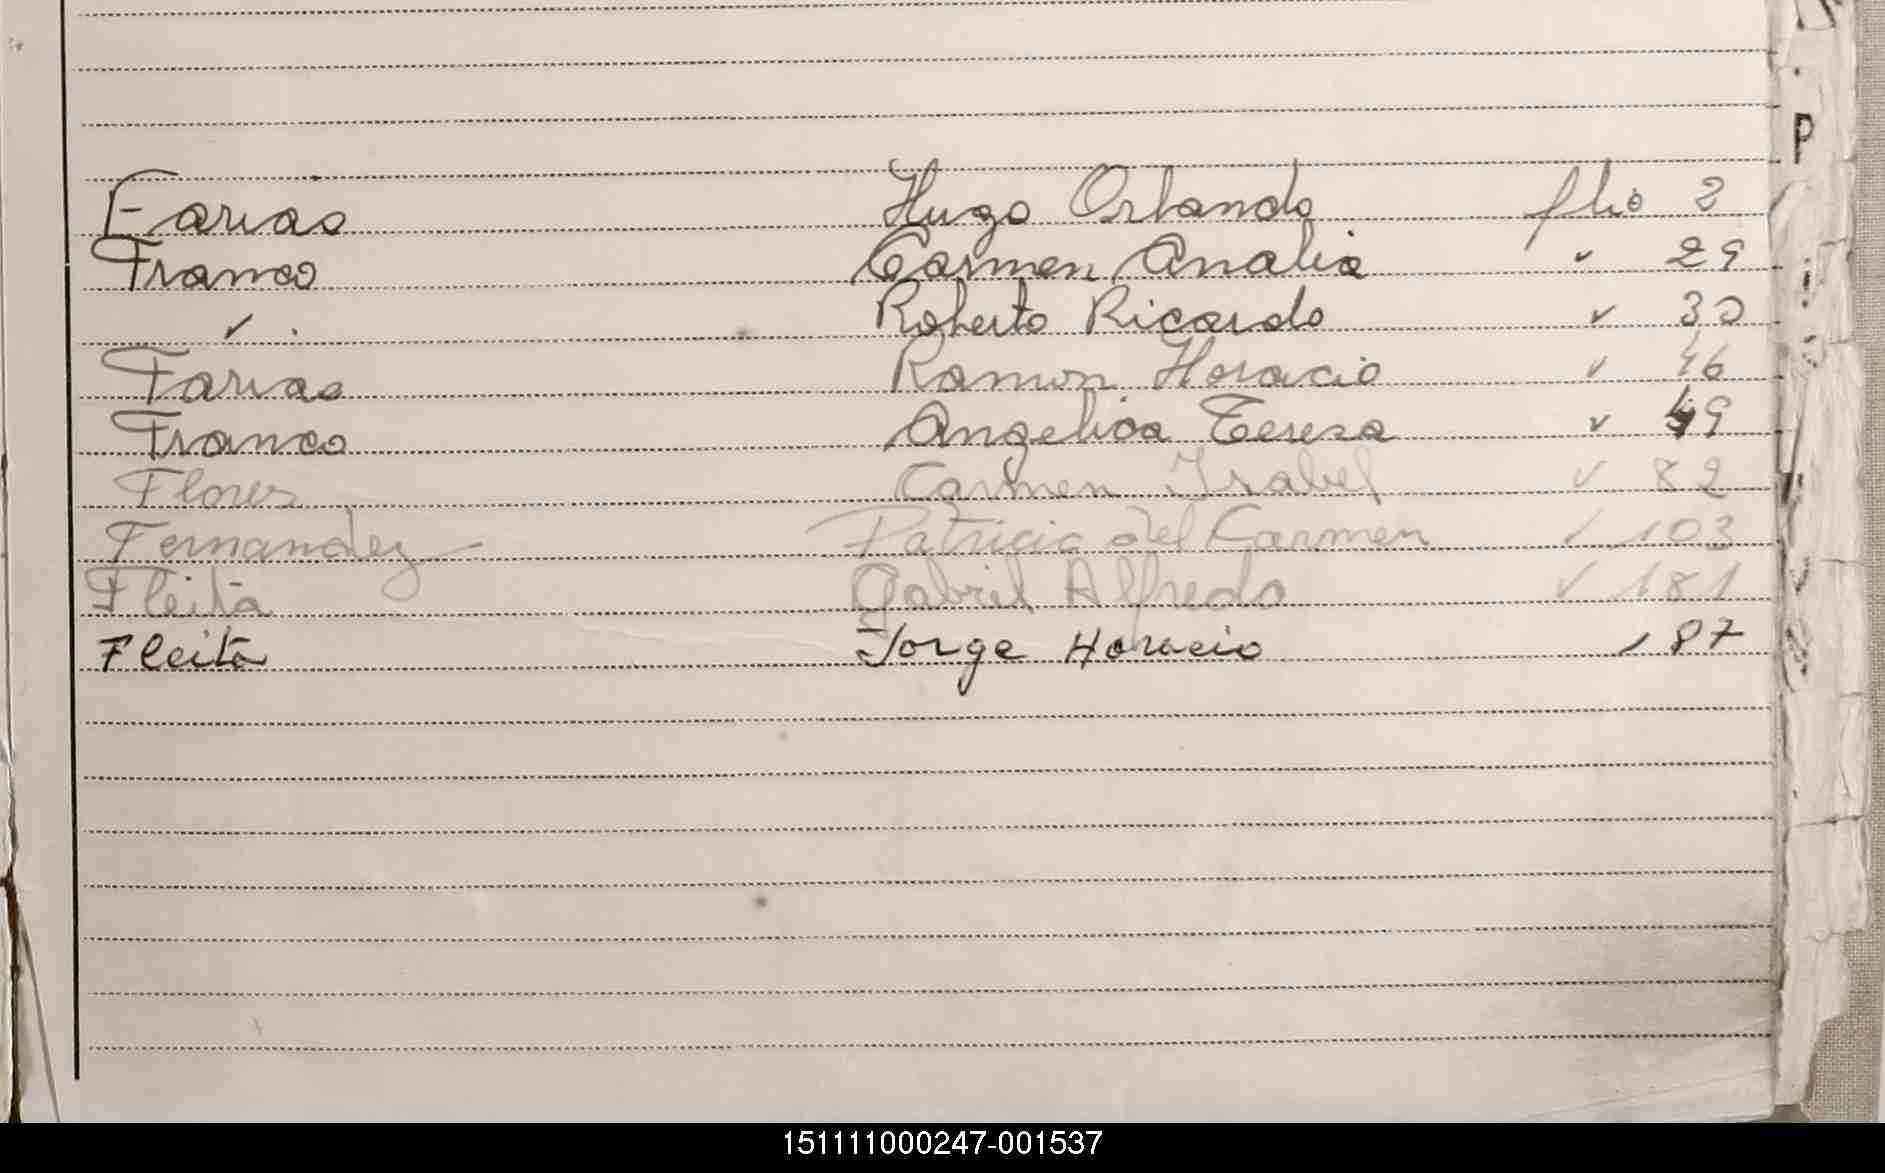 Farias Hugo Orlando flio 2
Franco Carmen Analia " 29
" . Roberto Ricardo " 30
Farias Ramon Horacio " 46
Franco Angelica Teresa " 49
Flores Carmen Isabel " 82
Fernandez - Patricia del Carmen " 103
Fleita Gabriel Alfredo " 181
Fleita Jorge Horacio 187
P
151111000247-001537